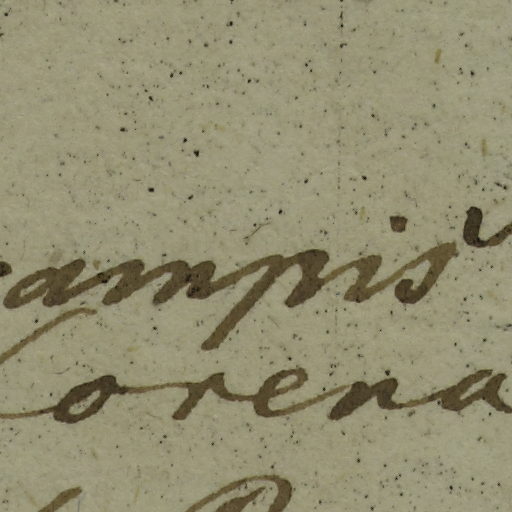 ampis
orena